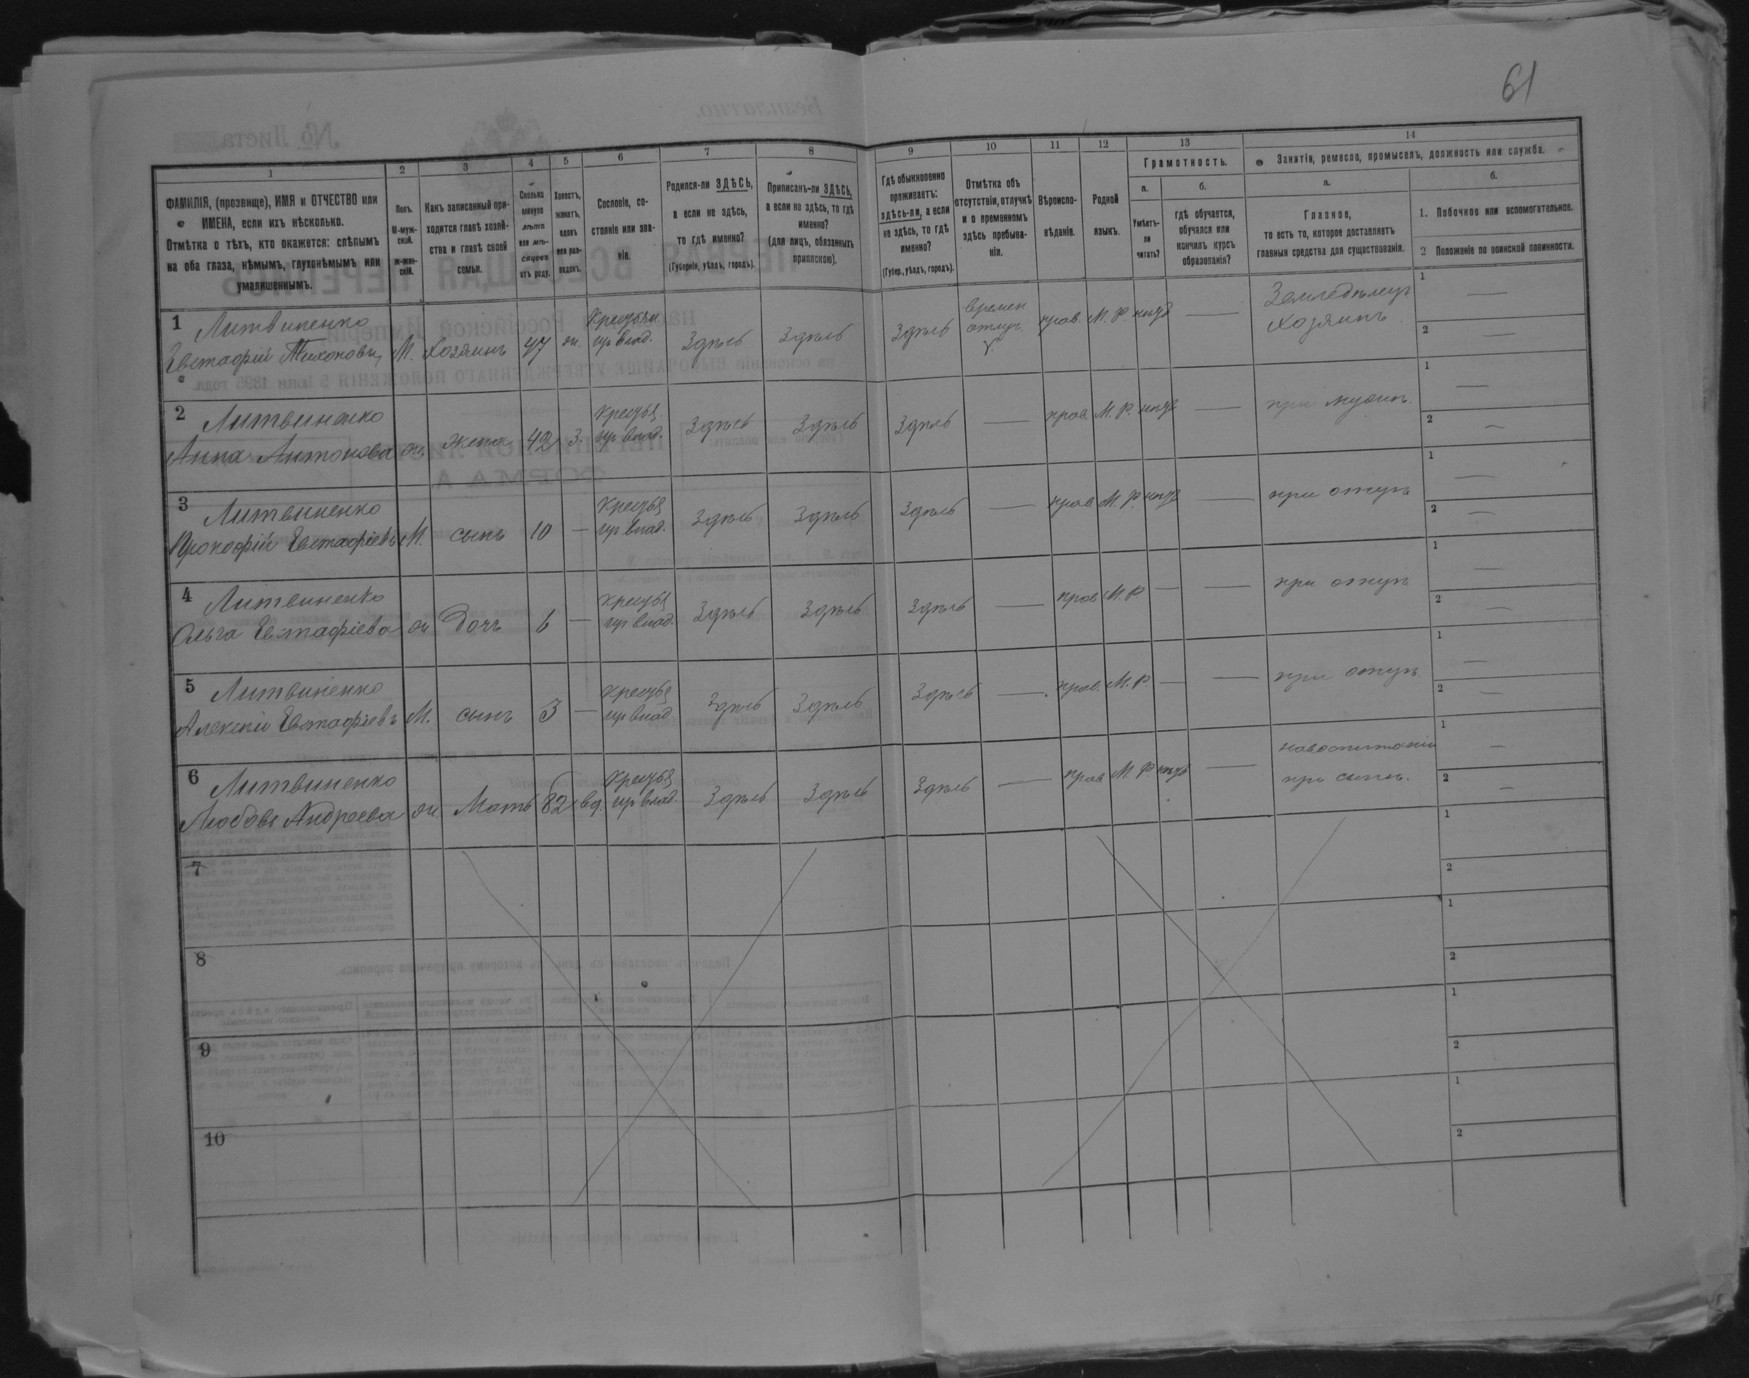 61
1
2
3
4
5
6
7
8
9
10
11
12
13
14
ФАМИЛІЯ, (прозвище), ИМЯ и ОТЧЕСТВО или
ИМЕНА, если ихъ нѣсколько.
Отмѣтка о тѣхъ, кто окажется: слѣпымъ
на оба глаза, нѣмымъ, глухонѣмымъ или
умалишеннымъ.
Полъ.
М-муж-
ской.
Ж-жен-
скій.
Какъ записанный при-
ходится главѣ хозяй-
ства и главѣ своей
семьи.
Сколько
минуло
лѣтъ
или мѣ-
сяцевъ
отъ роду.
Холостъ,
женатъ,
вдовъ
или раз-
веденъ.
Сословіе, со-
стояніе или зва-
ніе.
Родился-ли ЗДѢСЬ,
а если не здѣсь,
то гдѣ именно?
(Губернія, уѣздъ, городъ).
Приписанъ-ли ЗДѢСЬ,
а если не здѣсь, то гдѣ
именно?
(для лицъ, обязанныхъ
припискою).
Гдѣ обыкновенно
проживаетъ:
здѣсь-ли, а если
не здѣсь, то гдѣ
именно?
(Губер., уѣздъ, городъ).
Отмѣтка объ
отсутствіи, отлучкѣ
и о временномъ
здѣсь пребыва-
ніи.
Вѣроиспо-
вѣданіе.
Родной
языкъ.
Грамотность.
а.
Умѣетъ-
ли
читать?
б.
гдѣ обучается,
обучался или
кончилъ курсъ
образованія?
Занятіе, ремесло, промыселъ, должность или служба.
а.
Главное,
то есть то, которое доставляетъ
главныя средства для существованія.
б.
1. Побочное или вспомогательное.
2 Положеніе по воинской повинности.
1 Литвиненко
Евстафій Тихоновъ М. Хозяинъ 47 ж. Крестьян. Здѣсь Здѣсь Здѣсь времен отлуч. прав. М. Р. Земледѣлец Хозяинъ 1 — 2 —
2 Литвиненко
Анна Антонова ж. жена 42 з. Здѣсь Здѣсь Здѣсь — прав М. Р. — при мужи 1 — 2 —
3 Литвиненко
Прокофій Евстафіевъ М. сынъ 10 — Здѣсь Здѣсь Здѣсь — прав М. Р. — при отцѣ 1 — 2 —
4 Литвиненко
Ольга Евстафіева ж. Дочь 6 — Здѣсь Здѣсь Здѣсь — прав М. Р — — при отцѣ 1 — 2 —
5 Литвиненко
Алексій Евстафіевъ М. сынъ 3 — Здѣсь Здѣсь Здѣсь — прав. М. Р — — при отцѣ 1 — 2 —
6 Литвиненко
Любовь Андреева ж. Мать 82 вд. Здѣсь Здѣсь Здѣсь — прав М. Р — при сынѣ. 1 — 2 —
7 1 2
8 1 2
9 1 2
10 1 2